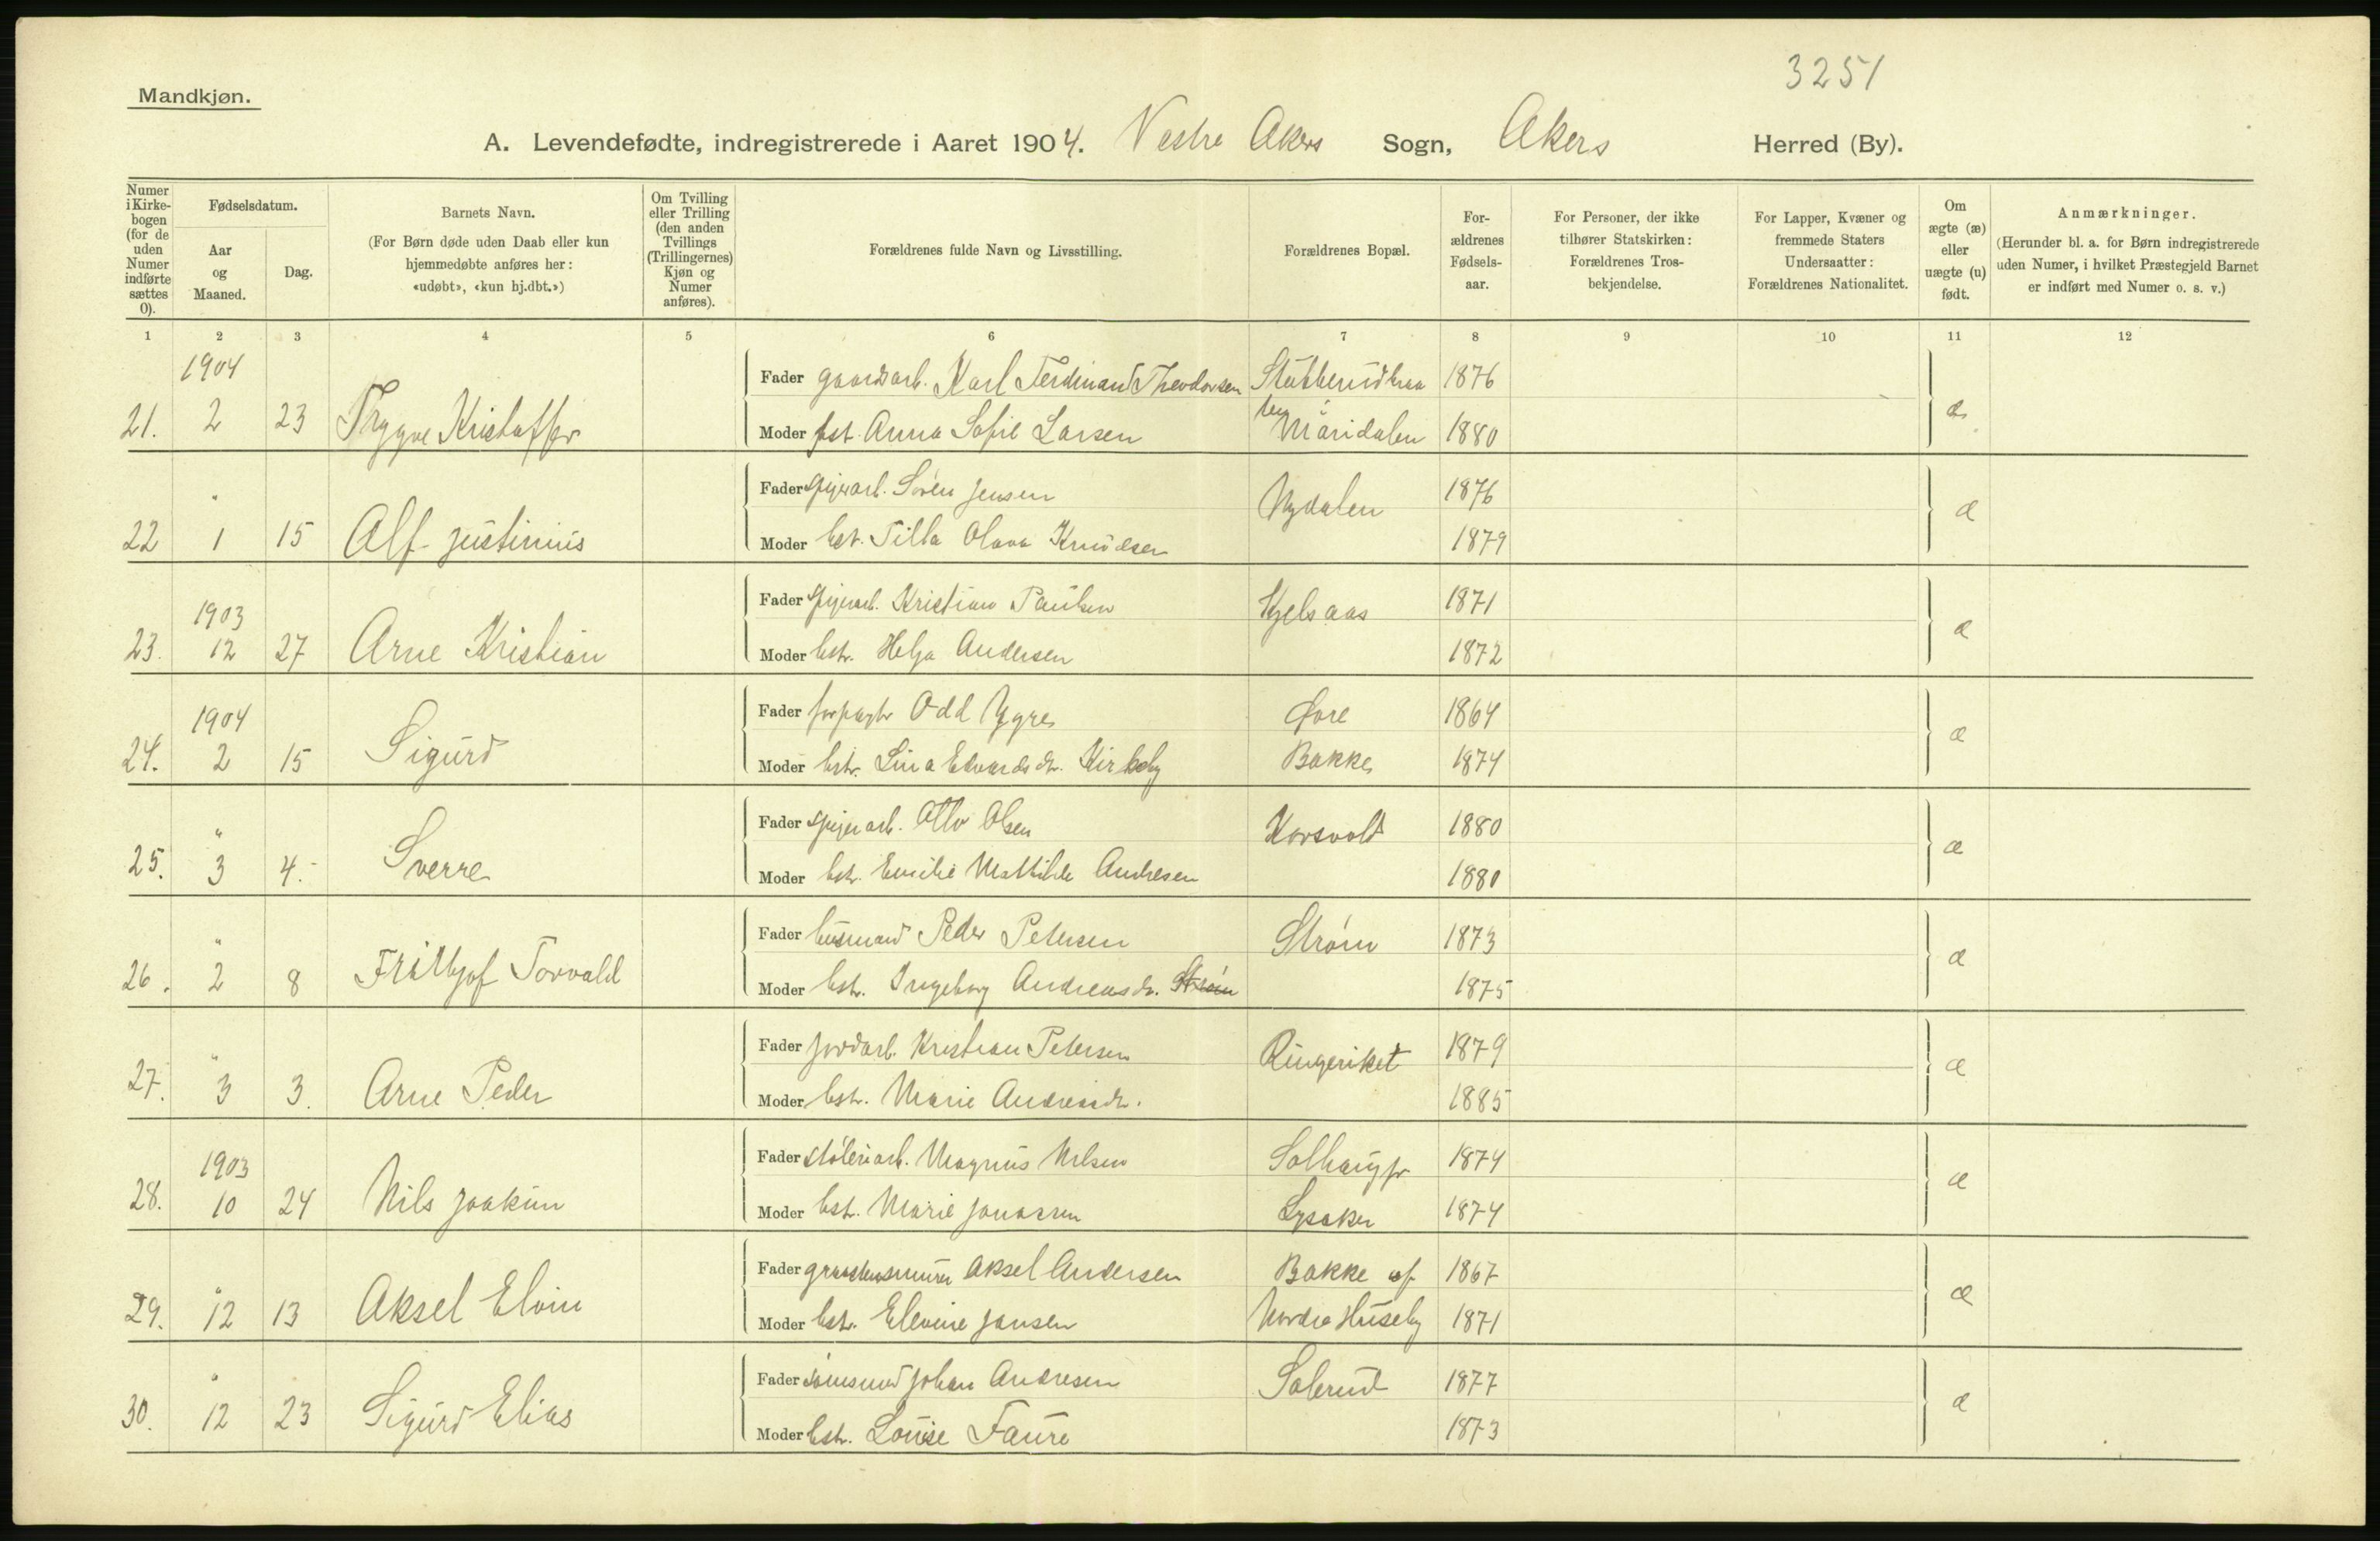 3251
Mandkjøn.
A. Levendefødte, indregistrerede i Aaret 1904. Vestre Akers Sogn, Akers Herred (By).
Numer i Kirke-bogen (for de uden Numer indførte sættes 0).
Fødselsdatum.
Aar og Maaned.
Dag.
Barnets Navn.
(For Børn døde uden Daab eller kun hjemmedøbte anføres her: «udøbt», «kun hj.dbt.»)
Om Tvilling eller Trilling (den anden Tvillings (Trillingernes) Kjøn og Numer anføres).
Forældrenes fulde Navn og Livsstilling.
Forældrenes Bopæl.
For-ældrenes Fødsels-aar.
For Personer, der ikke tilhører Statskirken: Forældrenes Tros-bekjendelse.
For Lapper, Kvæner og fremmede Staters Undersaatter: Forældrenes Nationalitet.
Om ægte (æ) eller uægte (u) født.
Anmærkninger.
(Herunder bl. a. for Børn indregistrerede uden Numer, i hvilket Præstegjeld Barnet er indført med Numer o. s. v.)
1 2 3 4 5 6 7 8 9 10 11 12
1904
Fader gaardsarb. Karl Ferdinand Theodorsen 1876
21. 2 23 Trygve Kristoffer æ
Moder hst. Anna Sofie Larsen Maridalen 1880
Fader spigerarb. Søren Jensen Nydalen 1876
22 " 1 15 Alf Justinius æ
Moder hst. Tilla Olava Knudsen 1879
Fader spigerarb. Kristian Paulsen Kjelsaas 1871
1903
23. 12 27 Arne Kristian æ
Moder hstr. Helga Andersen 1872
Fader forpagtr Odd Ygre Øvre 1864
1904
24. 2 15 Sigurd æ
Moder hstr. Lina Edvardsdr. Kirkeby Bakke 1874
Fader spigerarb. Otto Olsen Korsvold 1880
25. " 3 4. Sverre æ
Moder hstr. Emilie Mathilde Andresen 1880
Fader husmand Peder Petersen Strøm 1873
26. " 2 8 Frithjof Torvald æ
Moder hstr. Ingeborg Andreasdr. Strøm 1875
Fader jordarb. Kristian Petersen Ringeriket 1879
27. " 3 3. Arne Peder æ
Moder hstr. Marie Andreasdr. 1885
Fader støberiarb. Magnus Nilsen Solhaug pr 1874
1903
28. 10 24 Nils Joakim æ
Moder hst. Marie Jonassen Lysaker 1874
Fader graastensmurer Aksel Andersen Bakke af 1867
29. " 12 13 Aksel Elvin æ
Moder hst. Elevine Jansen Nordre Huseby 1871
Fader Johan Andresen Solerud 1877
30. " 12 23 Sigurd Elias æ
Moder hstr. Louise Faure 1873